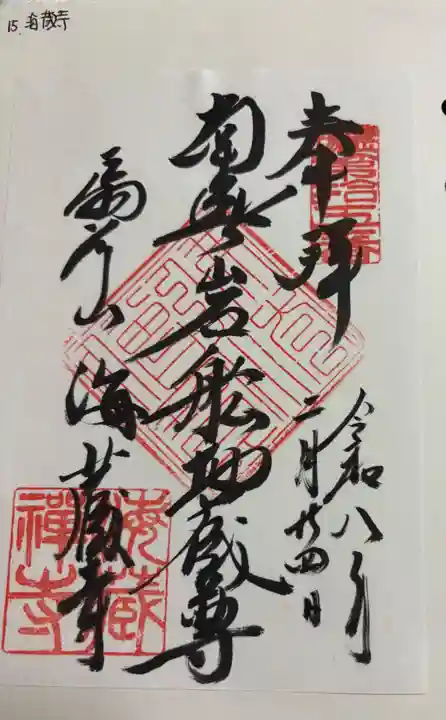 15.海蔵寺
奉拝
令和八年
二月廿四日
南無岩船地蔵尊
扇谷山 海蔵寺
海藏
禪寺